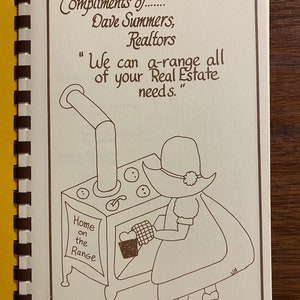 Compliments of.......
Dave Summers,
Realtors
"We can a-range all
of your Real Estate
needs."
Home
on
the
Range